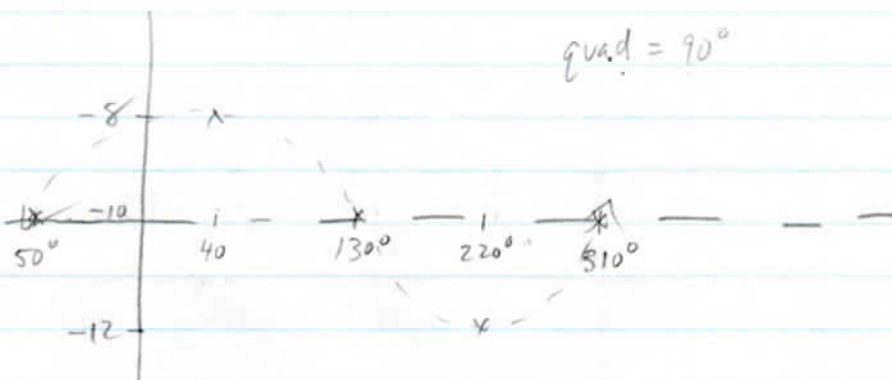 quad = 90°
-8
-10
50° 40 130° 220° 310°
-12